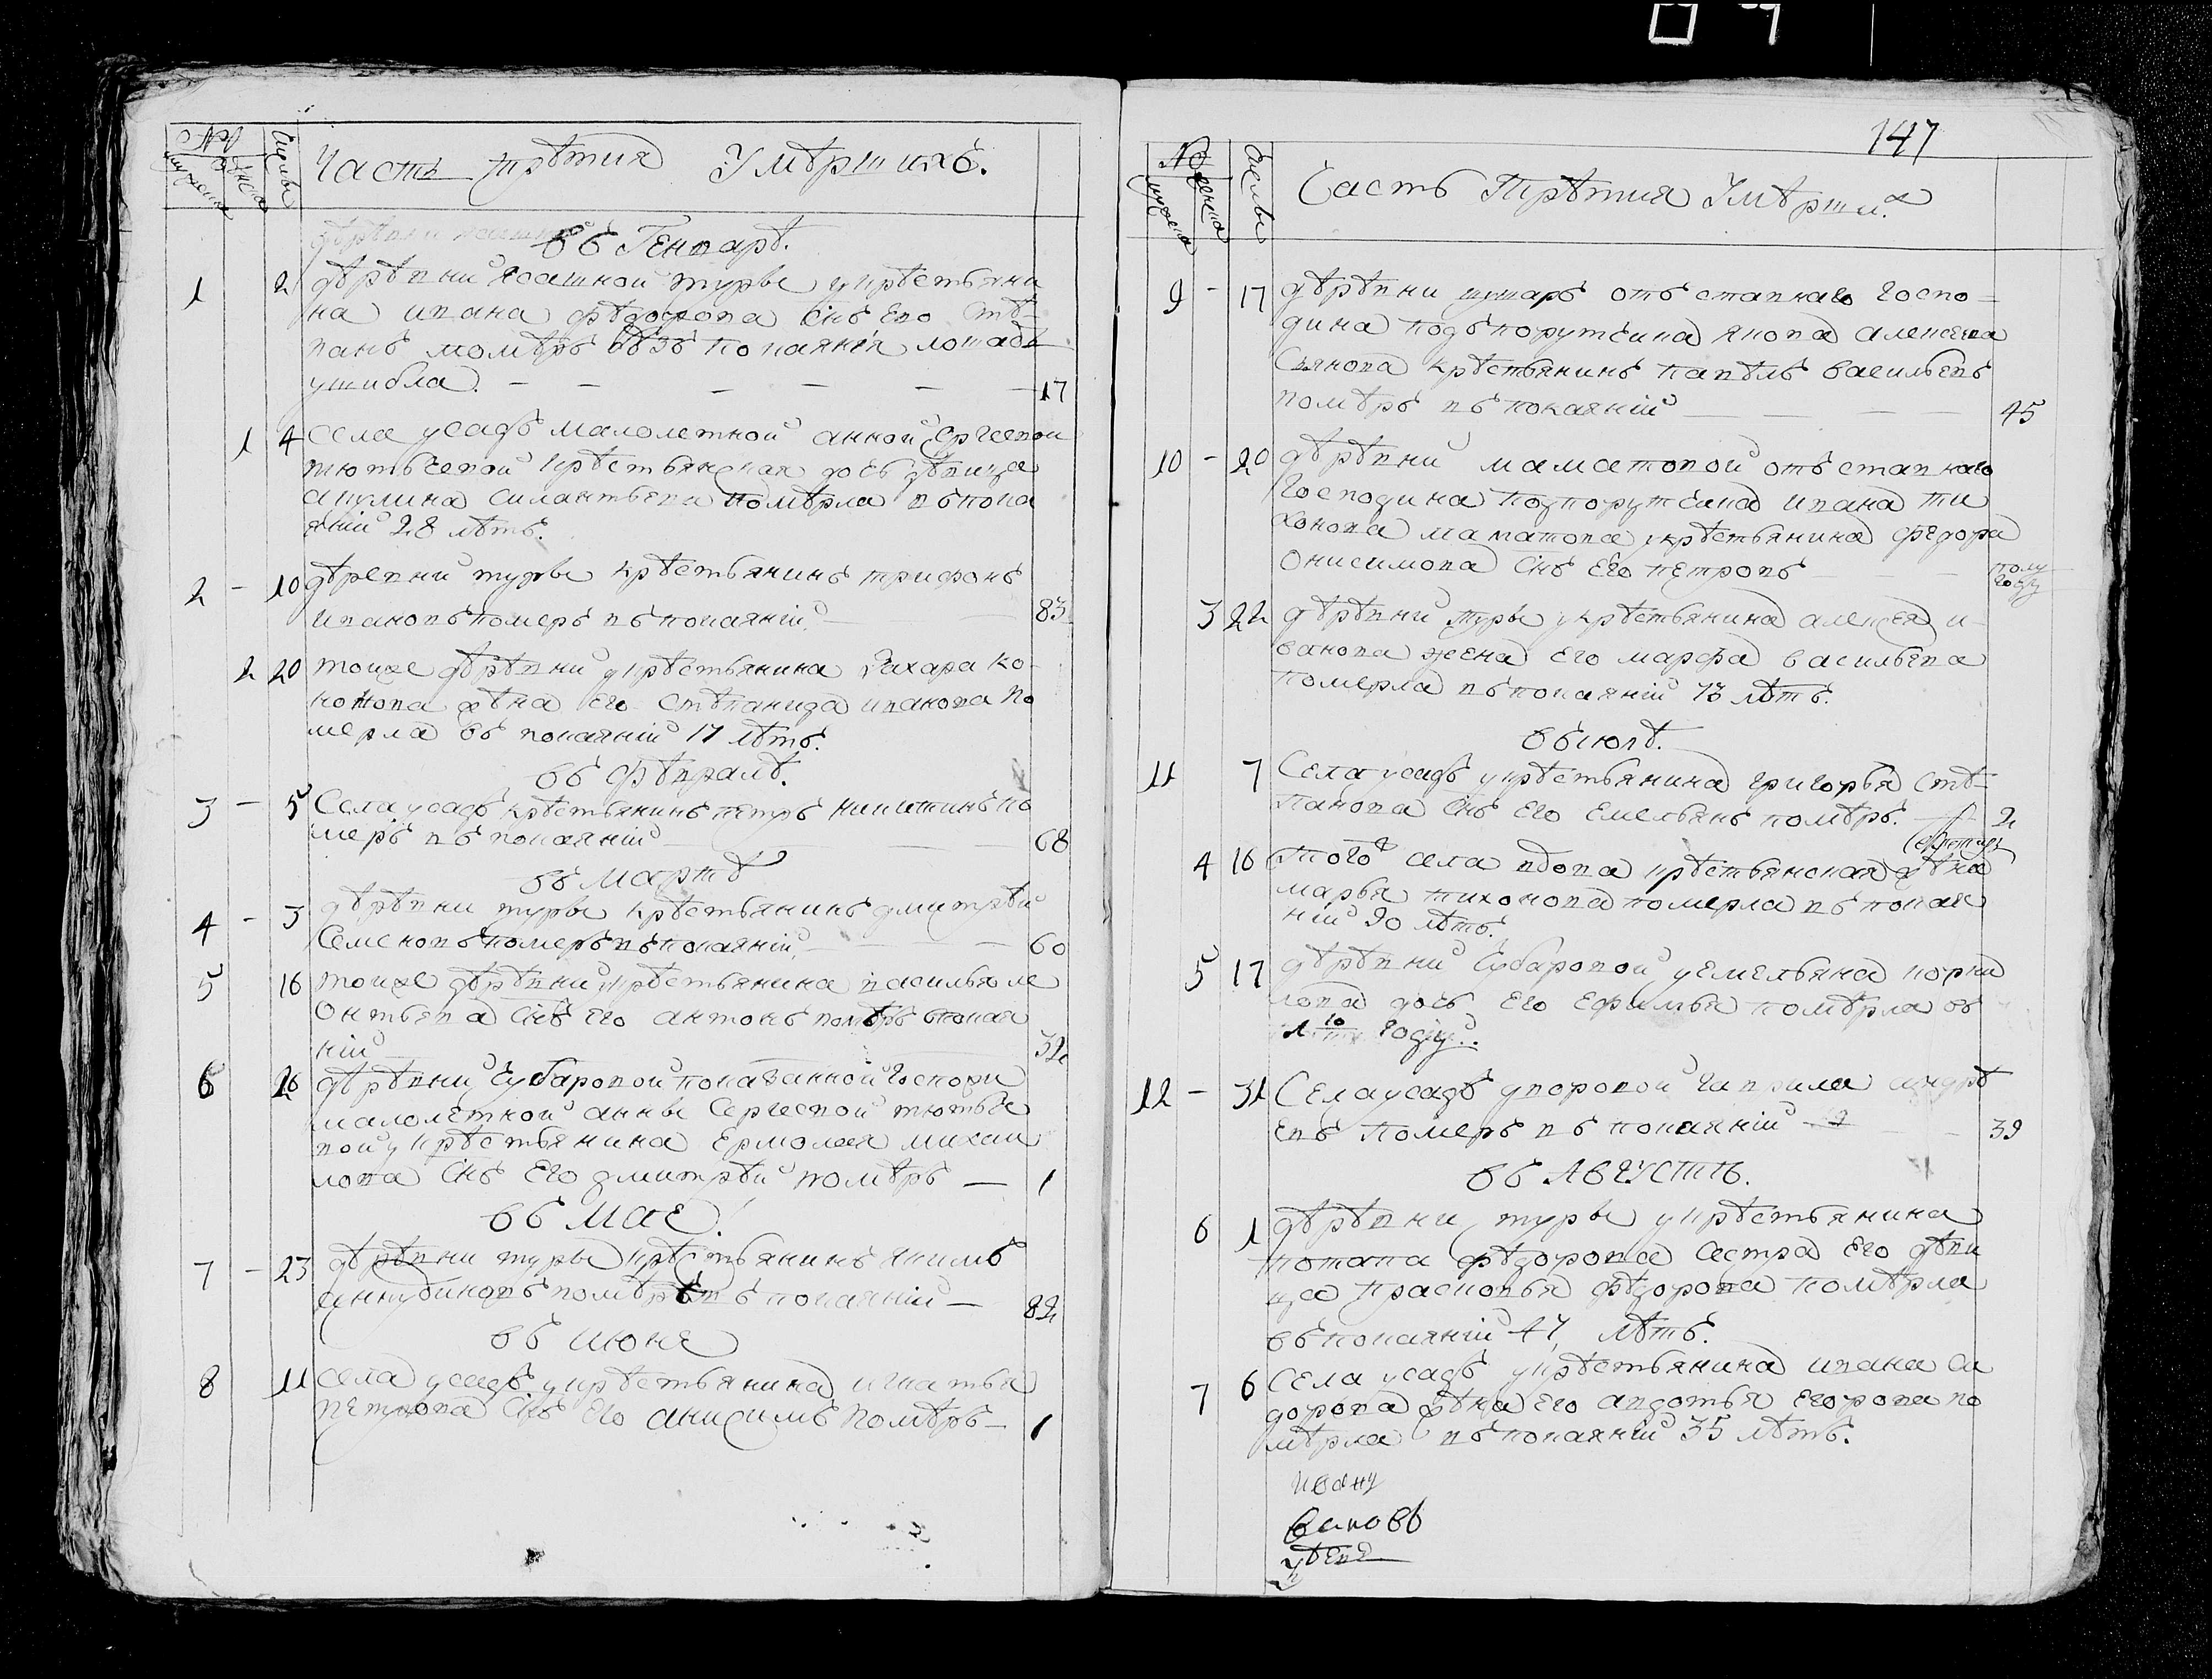 №
мужеска
женска
Числы
Часть трѣтия Умѣршихъ.
въ Генварѣ.
1 2 дѣрѣвни Ясашной туры у крѣстьяни
на ивана фѣдорова Снъ его Стѣ-
панъ помѣръ безъ покаянія лошадь
ушибла. — 17
1 4 села усадъ малолетной анной Сргеевой
тютьчевой крѣстьянская дочь дѣвица
акулина силантьева помѣрла въ пока
яніи 28 лѣтъ.
2 - 10 дѣревни туры крѣстьянинъ трифонъ
ивановъ померъ въ покаяніи. 83
2 20 тоиже дѣрѣвни у крѣстьянина Захара ко-
нонова жѣна его Стѣпанида иванова по
мерла въ покаяніи 17 лѣтъ.
въ фѣвралѣ.
3 - 5 Села усадъ крѣстьянинъ петръ никитинъ по
меръ въ покаяніи 68
въ мартѣ
4 - 3 дѣрѣвни туры крѣстьянинъ дмитрѣй
Семеновъ померъ въ покаяніи. 60
5 16 тоиже дѣрѣвни у крѣстьянина василья ле
онтьева Снъ его антонъ помѣръ впокая
ніи 32
6 26 дѣрѣвни Чубаровой показанной госпожи
малолетной анны Сергеевой тютьче
вой у крѣстьянина Ермолая михаи
лова Снъ Его дмитрѣй помѣръ — 1
въ мае
7 - 23 дѣрѣвни туры крѣстьянинъ якимъ
анкудиновъ помѣръ въ покаяніи — 82
въ июне
8 11 села усадъ у крѣстьянина игнатья
пѣтрова Снъ Его анисимъ помѣръ — 1
147
№
мужеска
женска
Числы
Часть Трѣтия Умѣрши.х
9 - 17 дѣрѣвни отъставнаго госпо-
дина подъпорутчика якова алексеева
крѣстьянинъ павѣлъ васильевъ
помѣръ въ покаяніи 45
10 - 20 дѣрѣвни маматовой отъставнаго
Господина подпорутчика ивана ти
хонова маматова у крѣстьянина федора
Онисимова Снъ Его пѣтровъ полу
году
3 22 дѣрѣвни туры у крѣстьянина алексея и-
ванова жена Его марфа васильева
померла въ покаяніи 73 лѣтъ.
въ июлѣ.
11 7 Села усадъ у крѣстьянина григорья Стѣ-
панова Снъ Его Емельянъ помѣръ. — 2
4 16 того села вдова крѣстьянская жѣна
марья тихонова померла въ покая
ніи 90 лѣтъ.
5 17 дѣрѣвни Чубаровой у емельяна корни
лова дочь Его Ефимья помѣрла въ
1 10 годіу..
12 - 31 Села усадъ дворовой гаврила андрѣ
евъ померъ въ покаяніи 39
въ Августѣ.
6 1 дѣрѣвни туры у крѣстьянина
потапа фѣдорова Сестра Его дѣви
ца прасковья фѣдорова помѣрла
въ покаяніи 47 лѣтъ.
7 6 Села усадъ у крѣстьянина ивана си
дорова жѣна Его авдотья Егорова по
мѣрла въ покаяніи 35 лѣтъ.
ивану